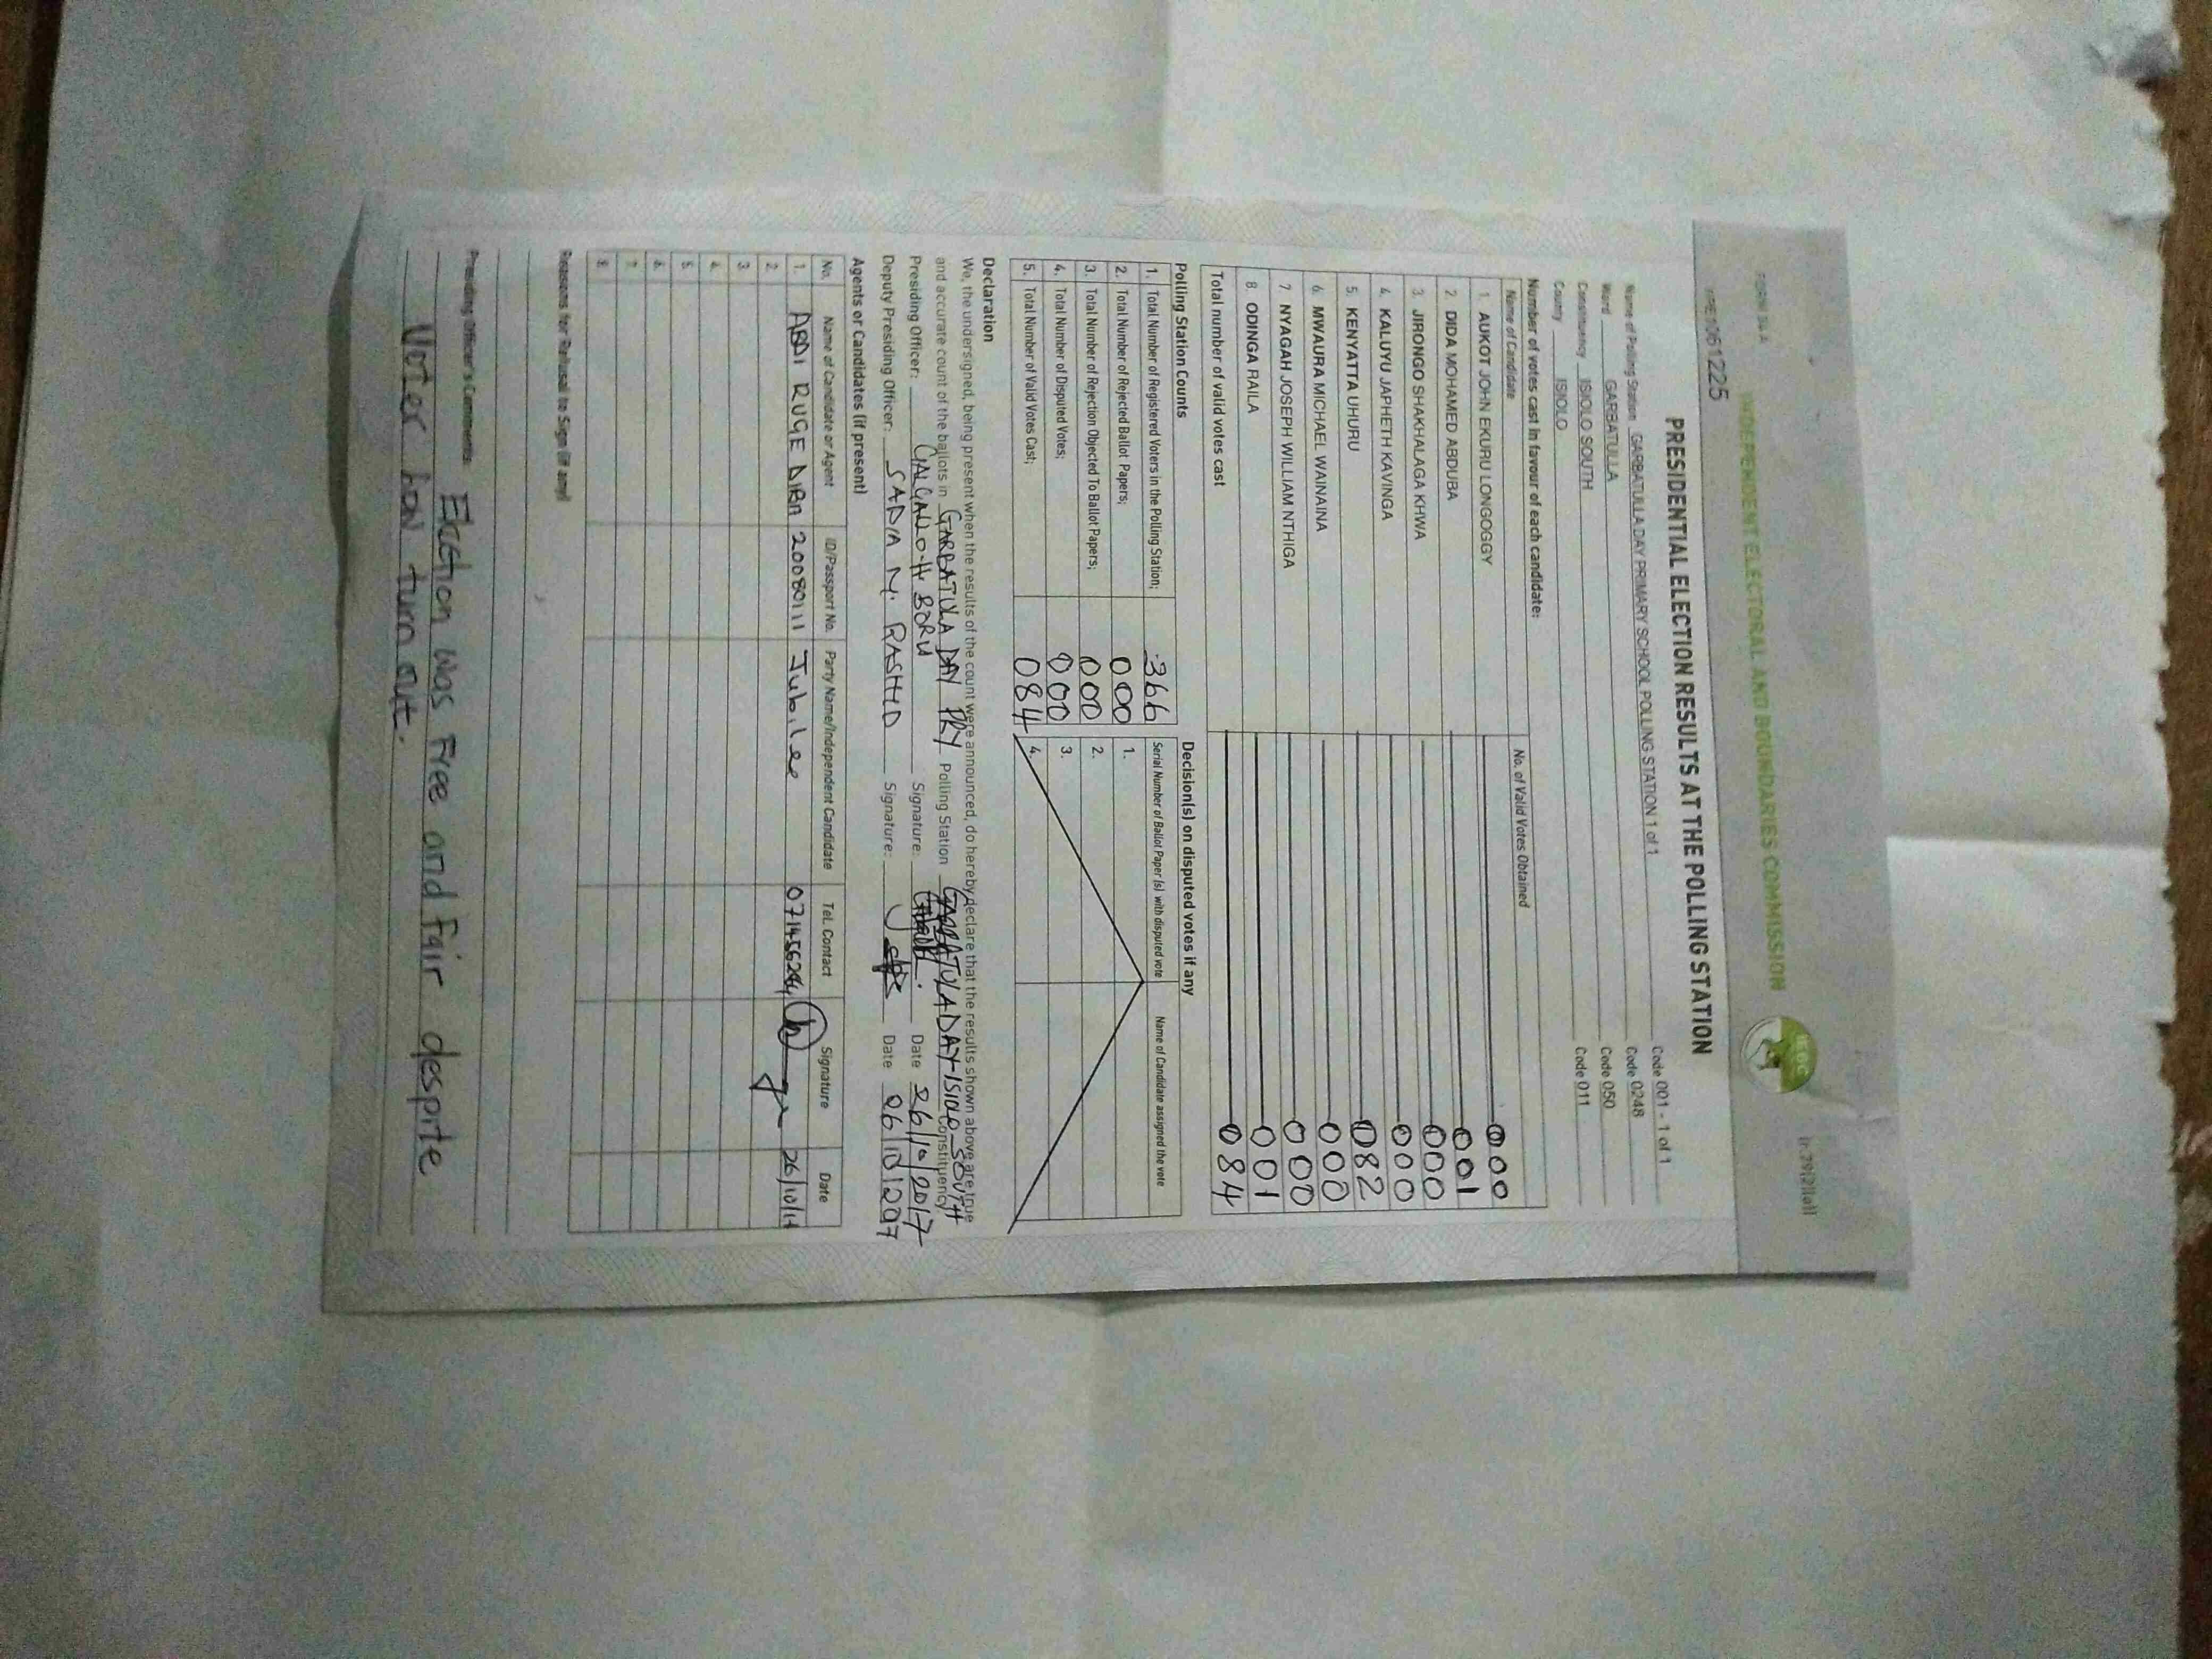 INDEPENDENT ELECTORAL AND BOUNDARIES COMMISSION
IEBC
FORM 34A
1061225
PRESIDENTIAL ELECTION RESULTS AT THE POLLING STATION
Name of Polling Station GARBATULLA DAY PRIMARY SCHOOL POLLING STATION 1 of 1 Code 001 - 1 of 1
Ward GARBATULLA Code 0248
Constituency ISIOLO SOUTH Code 050
County ISIOLO Code 011
Number of votes cast in favour of each candidate:
Name of Candidate No. of Valid Votes Obtained
1. AUKOT JOHN EKURU LONGOGGY 000
2. DIDA MOHAMED ABDUBA 001
3. JIRONGO SHAKHALAGA KHWA 000
4. KALUYU JAPHETH KAVINGA 000
5. KENYATTA UHURU 082
6. MWAURA MICHAEL WAINAINA 000
7. NYAGAH JOSEPH WILLIAM NTHIGA 000
8. ODINGA RAILA 001
Total number of valid votes cast 084
Polling Station Counts Decision(s) on disputed votes if any
1. Total Number of Registered Voters in the Polling Station; 366 Serial Number of Ballot Paper (s) with disputed vote Name of Candidate assigned the vote
2. Total Number of Rejected Ballot Papers; 000 1.
3. Total Number of Rejection Objected To Ballot Papers; 000 2.
4. Total Number of Disputed Votes; 000 3.
5. Total Number of Valid Votes Cast; 084 4.
Declaration
We, the undersigned, being present when the results of the count were announced, do hereby declare that the results shown above are true
and accurate count of the ballots in GARBATULA DAY PRY Polling Station GARBATULA DAY-ISIOLO SOUTH Constituency
Presiding Officer: GALGALO-H BORU Signature: Date 26/10/2017
Deputy Presiding Officer: SADIA M. RASHID Signature: Date 26/10/2017
Agents or Candidates (if present)
No. Name of Candidate or Agent ID/Passport No. Party Name/Independent Candidate Tel. Contact Signature Date
1. ABDI RUGE 20080111 Jubilee 26/10/17
2.
3.
4.
5.
6.
7.
8.
Reasons for Refusal to Sign (if any)
Presiding Officer's Comments: Election was Free and Fair despite
Voter low turn out.